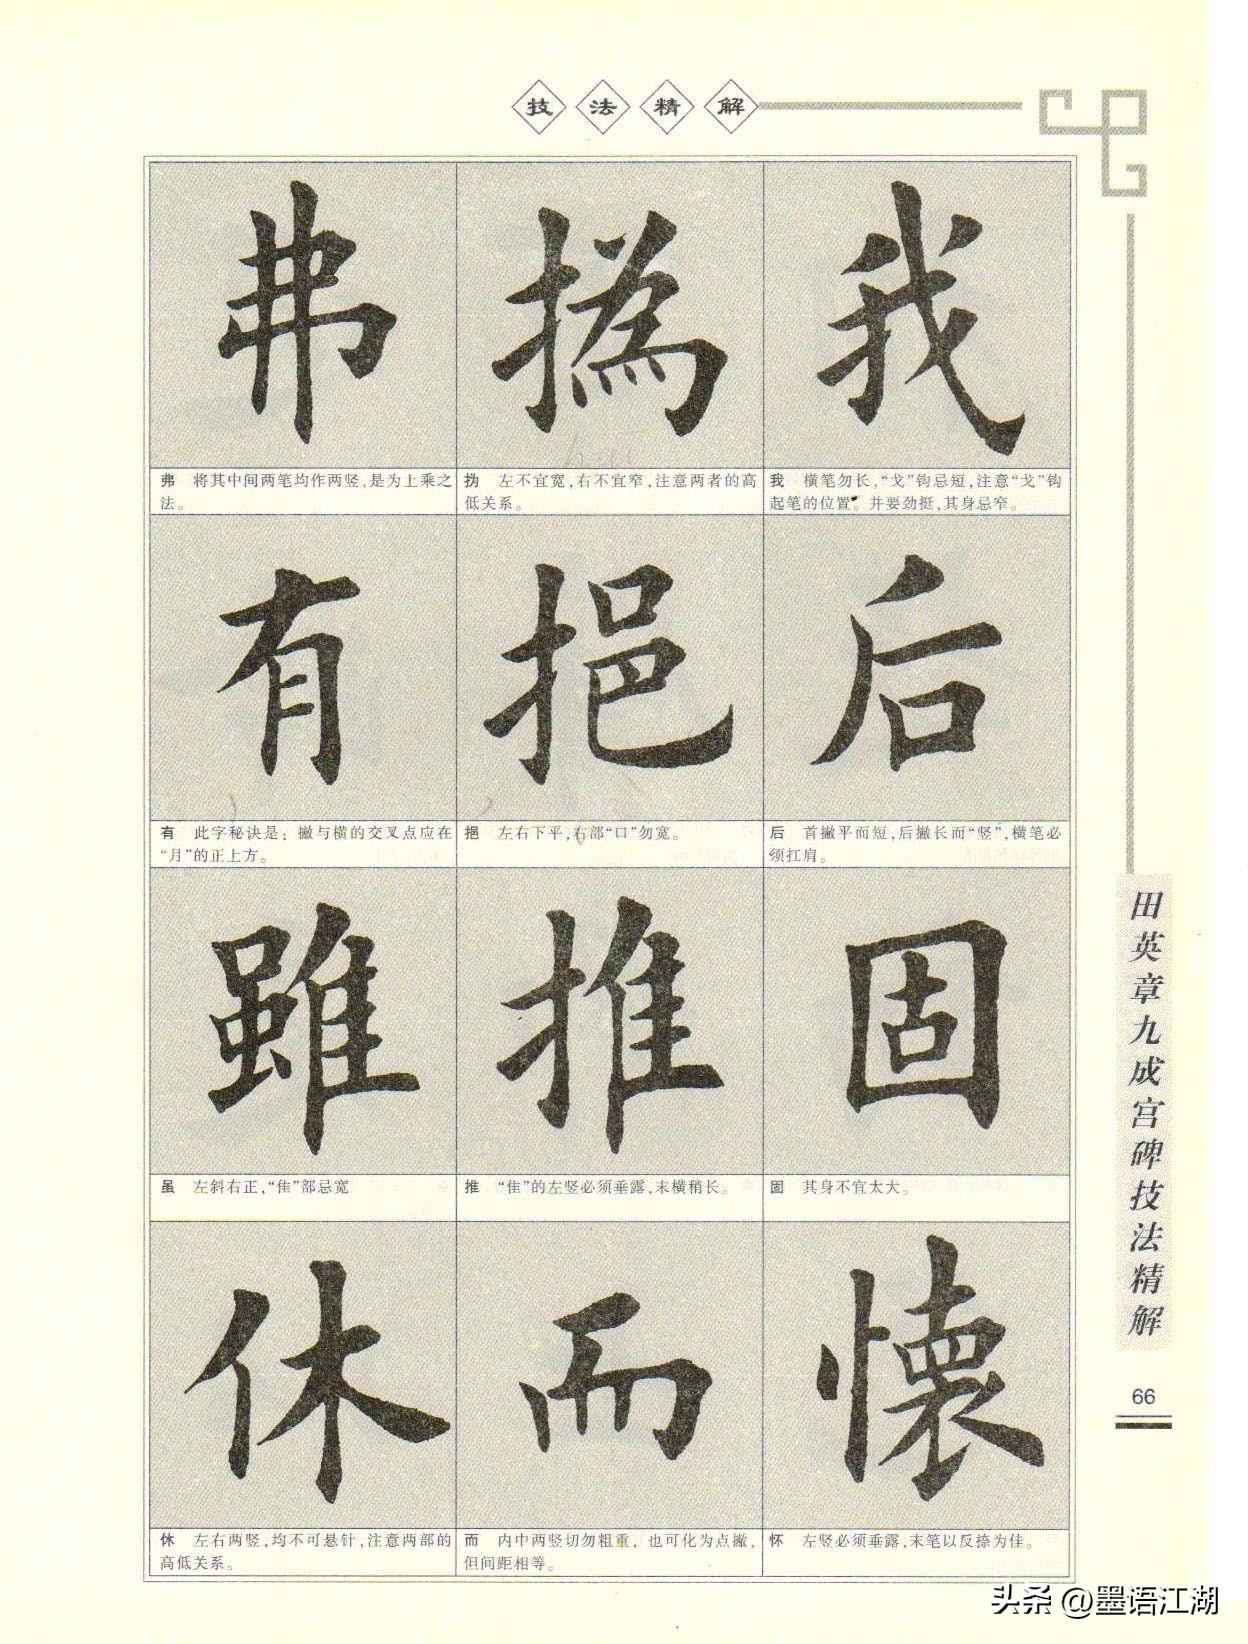 技法精解
弗 㧑 我
弗 将其中间两笔均作两竖,是为上乘之
法。
㧑 左不宜宽,右不宜窄,注意两者的高
低关系。
我 横笔勿长,“戈”钩忌短,注意“戈”钩
起笔的位置。并要劲挺,其身忌窄。
有 挹 后
有 此字秘诀是:撇与横的交叉点应在
“月”的正上方。
挹 左右下平,右部“口”勿宽。
后 首撇平而短,后撇长而“竖”,横笔必
须扛肩。
雖 推 固
虽 左斜右正,“隹”部忌宽
推 “隹”的左竖必须垂露,末横稍长。
固 其身不宜太大。
休 而 懷
休 左右两竖,均不可悬针,注意两部的
高低关系。
而 内中两竖切勿粗重,也可化为点撇,
但间距相等。
怀 左竖必须垂露,末笔以反捺为佳。
田英章九成宫碑技法精解
66
头条 @墨语江湖